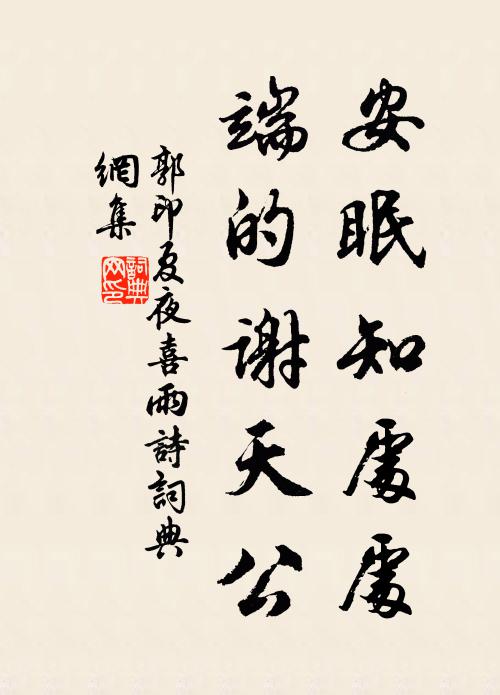 安眠知處處
端的谢天公
郭印夏夜喜雨詩詞典
網集
詞典
网印